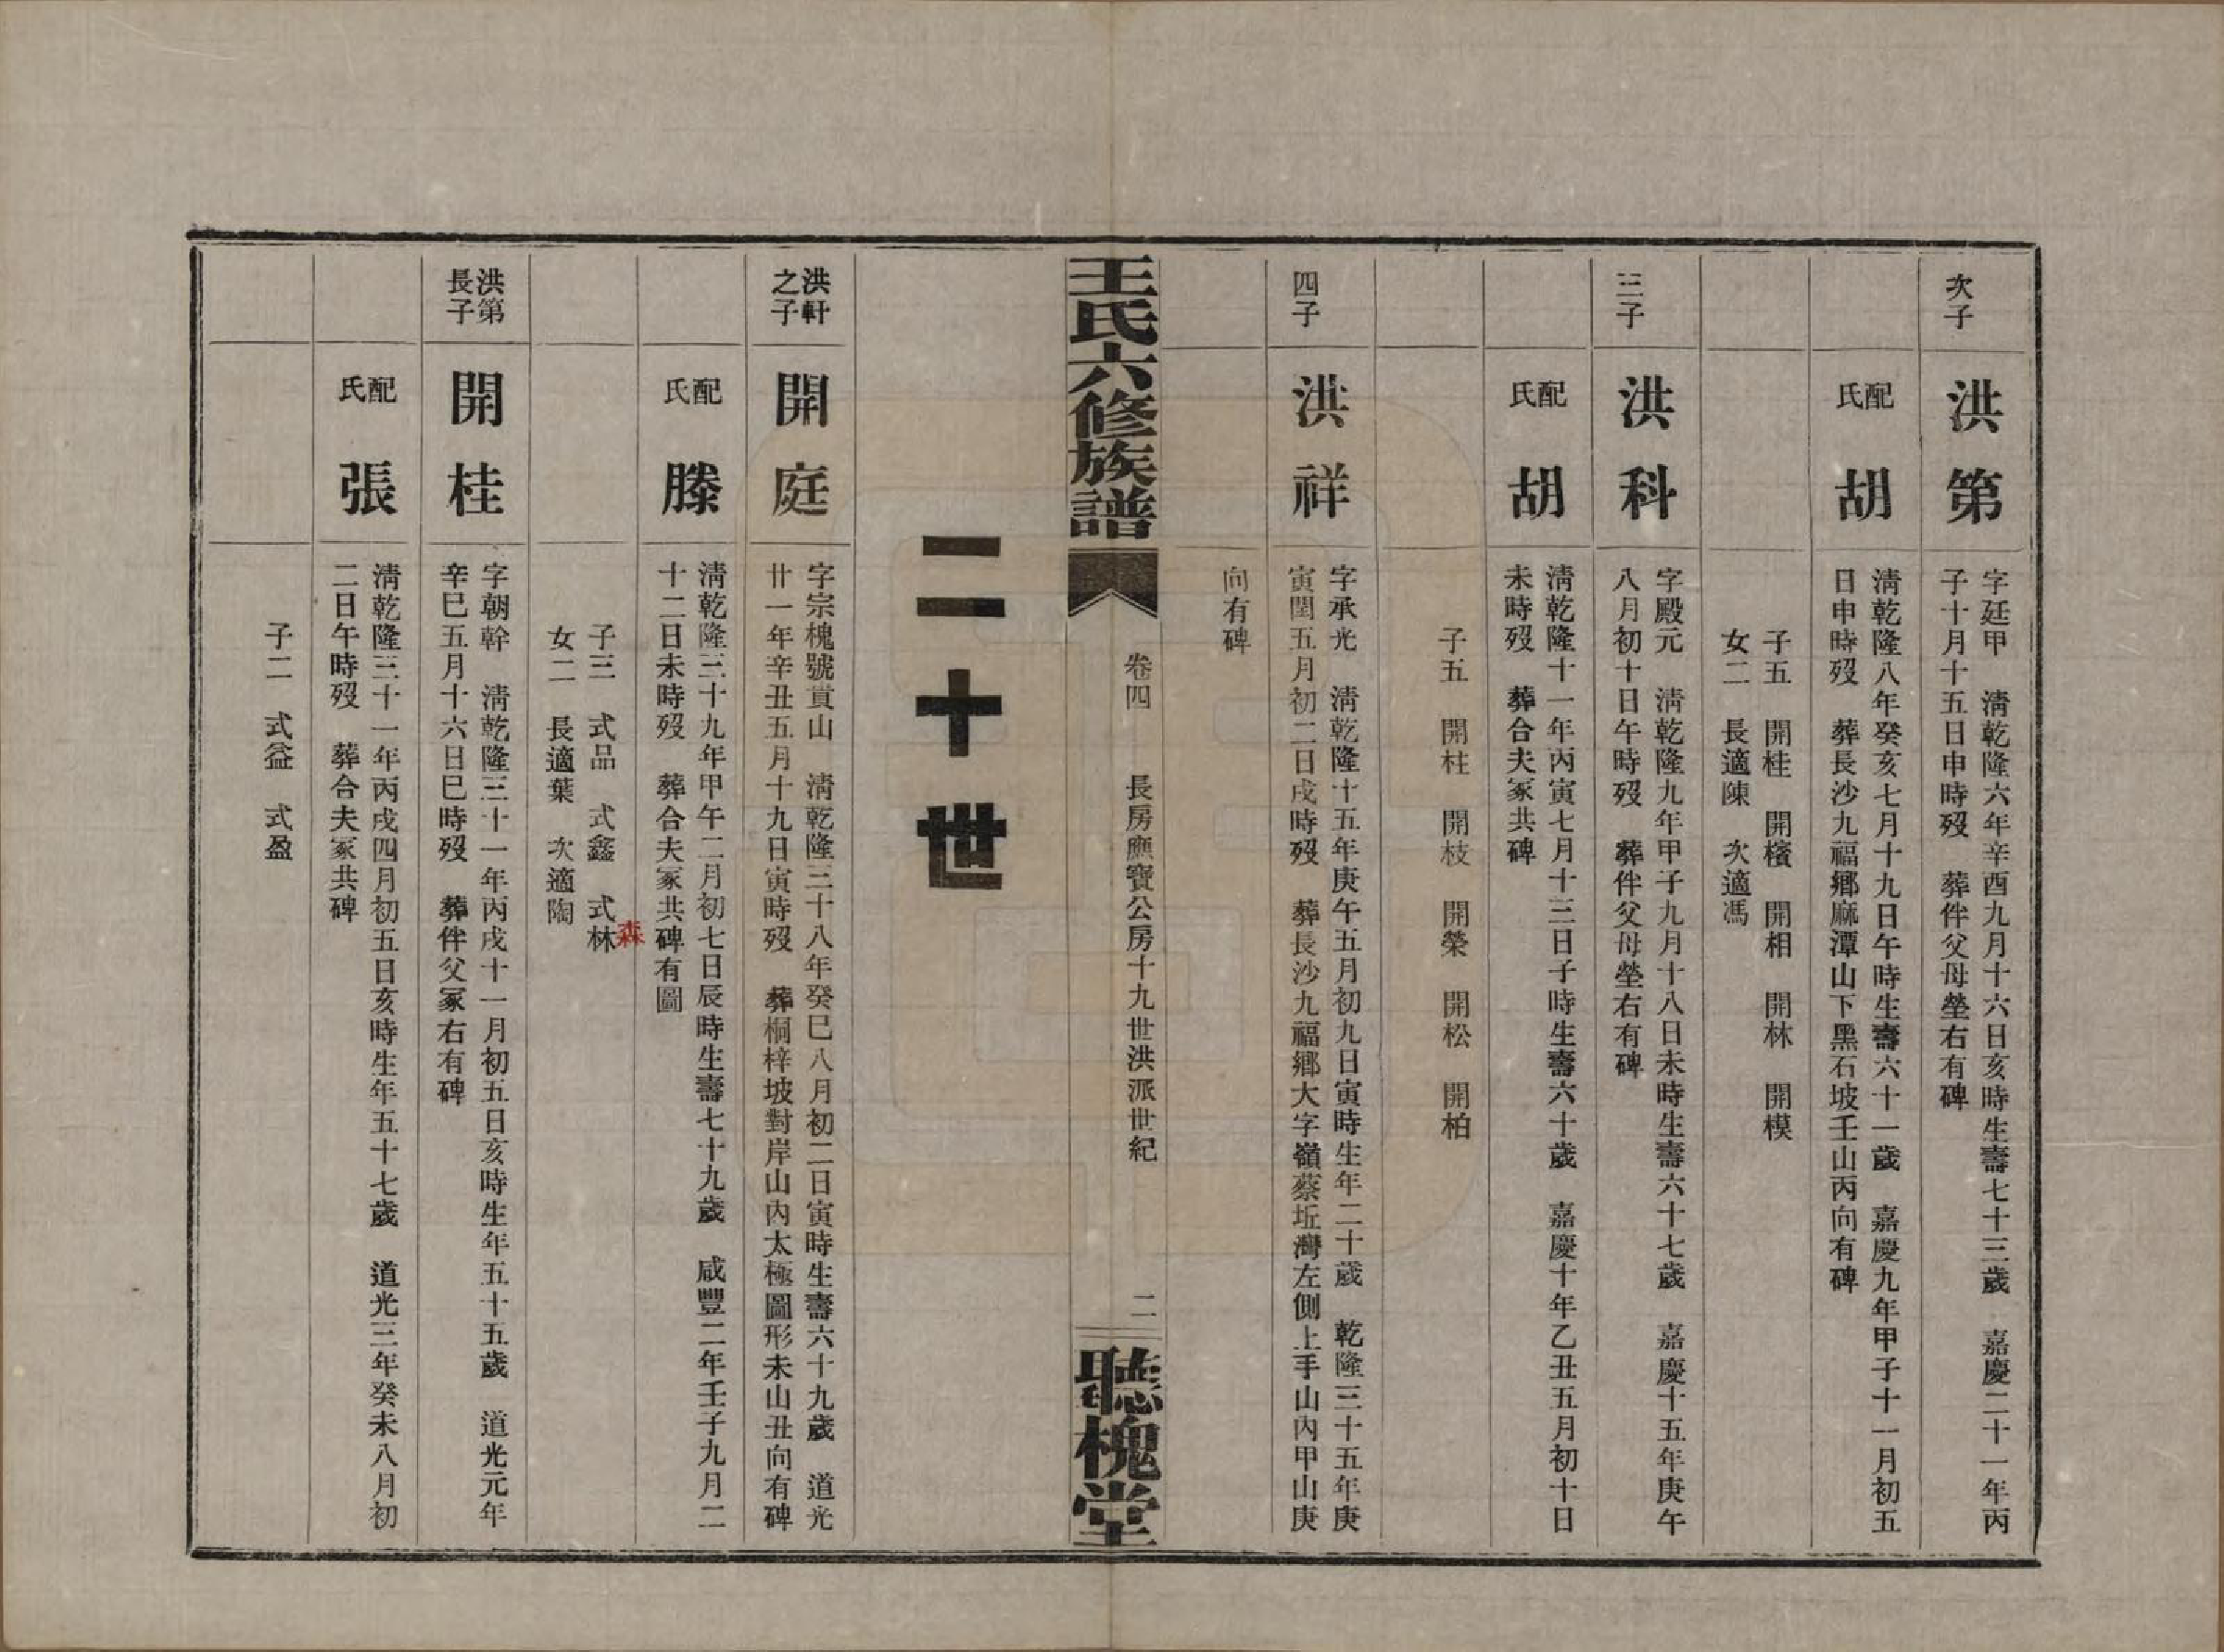 次子
洪第
字廷甲　淸乾隆六年辛酉九月十六日亥時生壽七十三歲　嘉慶二十一年丙
子十月十五日申時歿　葬伴父母塋右有碑
配氏
胡
淸乾隆八年癸亥七月十九日午時生壽六十一歲　嘉慶九年甲子十一月初五
日申時歿　葬長沙九福鄉麻潭山下黑石坡壬山丙向有碑
子五　開桂　開檳　開相　開林　開模
女二　長適陳　次適馮
三子
洪科
字殿元　淸乾隆九年甲子九月十八日未時生壽六十七歲　嘉慶十五年庚午
八月初十日午時歿　葬伴父母塋右有碑
配氏
胡
淸乾隆十一年丙寅七月十三日子時生壽六十歲　嘉慶十年乙丑五月初十日
未時歿　葬合夫冢共碑
子五　開柱　開枝　開榮　開松　開柏
四子
洪祥
字承光　淸乾隆十五年庚午五月初九日寅時生年二十歲　乾隆三十五年庚
寅閏五月初二日戌時歿　葬長沙九福鄉大字嶺蔡坵灣左側上手山內甲山庚
向有碑
王氏六修族譜
卷四　長房應寶公房十九世洪派世紀
二
聽槐堂
二十世
洪軒
之子
開庭
字宗槐號貫山　淸乾隆三十八年癸巳八月初二日寅時生壽六十九歲　道光
廿一年辛丑五月十九日寅時歿　葬桐梓坡對岸山內太極圖形未山丑向有碑
配氏
滕
淸乾隆三十九年甲午二月初七日辰時生壽七十九歲　咸豐二年壬子九月二
十二日未時歿　葬合夫冢共碑有圖
子三　式品　式鑫　式林
森
女二　長適葉　次適陶
洪第
長子
開桂
字朝幹　淸乾隆三十一年丙戌十一月初五日亥時生年五十五歲　道光元年
辛巳五月十六日巳時歿　葬伴父冢右有碑
配氏
張
淸乾隆三十一年丙戌四月初五日亥時生年五十七歲　道光三年癸未八月初
二日午時歿　葬合夫冢共碑
子二　式益　式盈